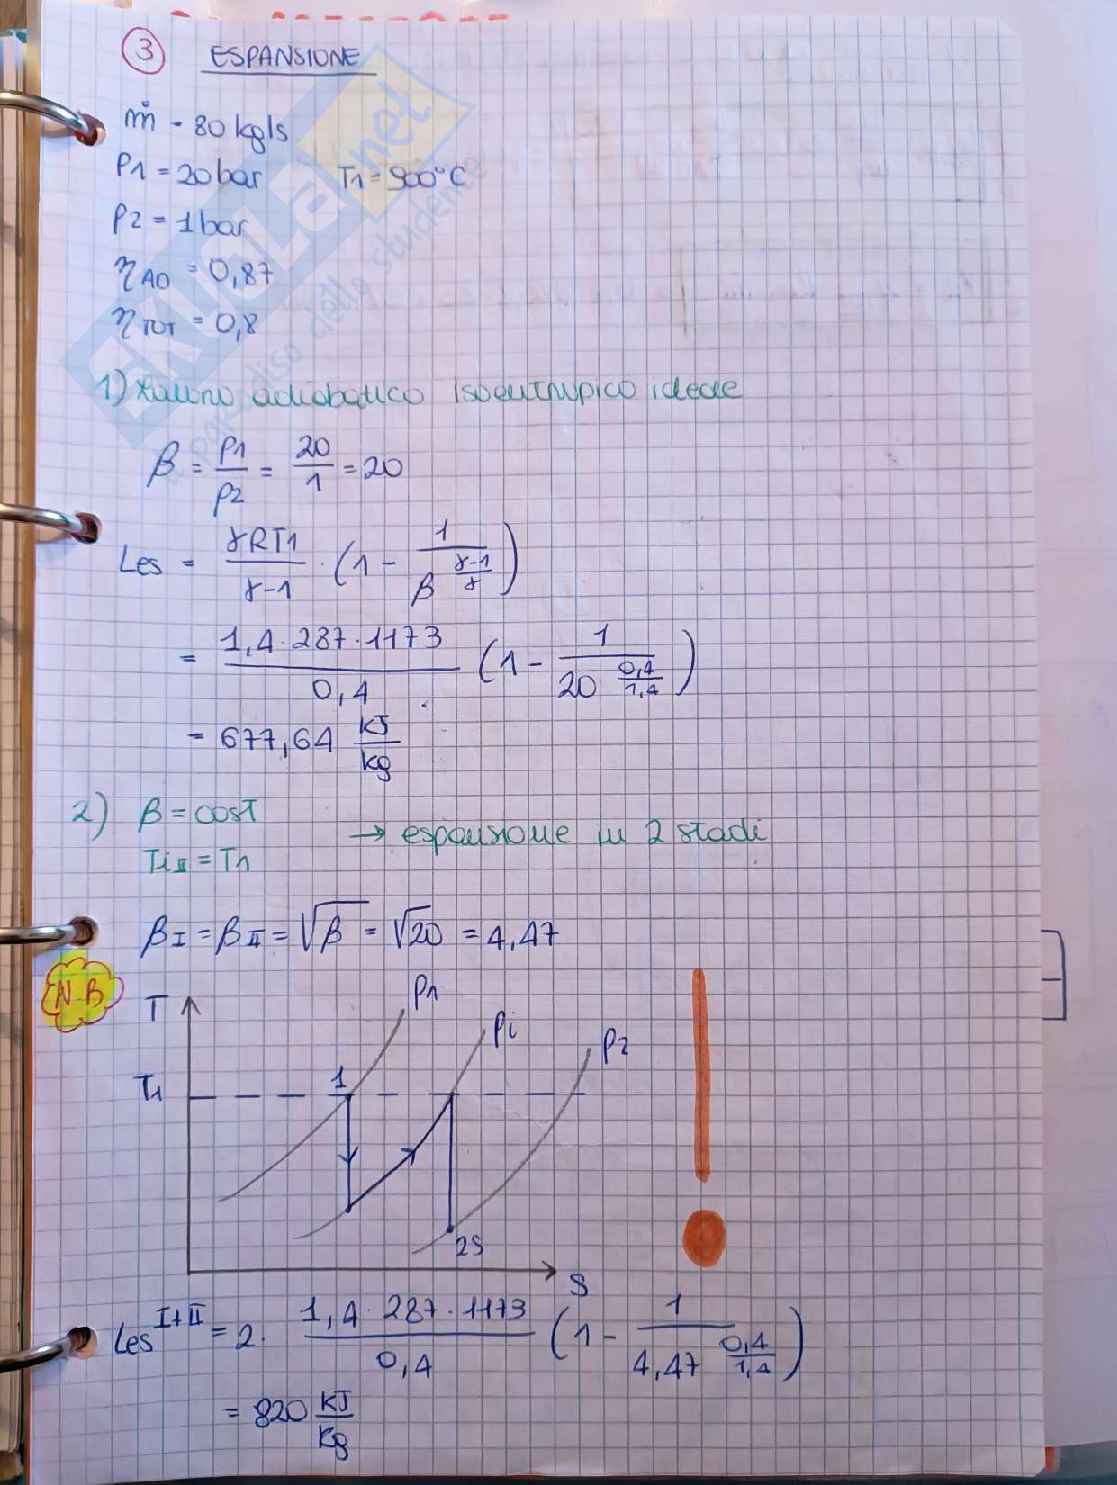 3 ESPANSIONE
ṁ = 80 kg/s
P1 = 20 bar T1 = 900°C
P2 = 1 bar
η AD = 0,87
η TOT = 0,8
1) adiabatico isoentropico ideale
β = P1/P2 = 20/1 = 20
Les = γRT1/(γ-1) · (1 - 1/β^((γ-1)/γ))
= 1,4·287·1173/0,4 (1 - 1/20^(0,4/1,4))
= 677,64 kJ/kg
2) β = cost
→ espansione in 2 stadi
TiII = T1
βI = βII = √β = √20 = 4,47
N B
T
P1
Pi
P2
T1
1
2s
S
Les^(I+II) = 2· 1,4·287·1173/0,4 (1 - 1/4,47^(0,4/1,4))
= 820 kJ/kg
SKUOLA.net